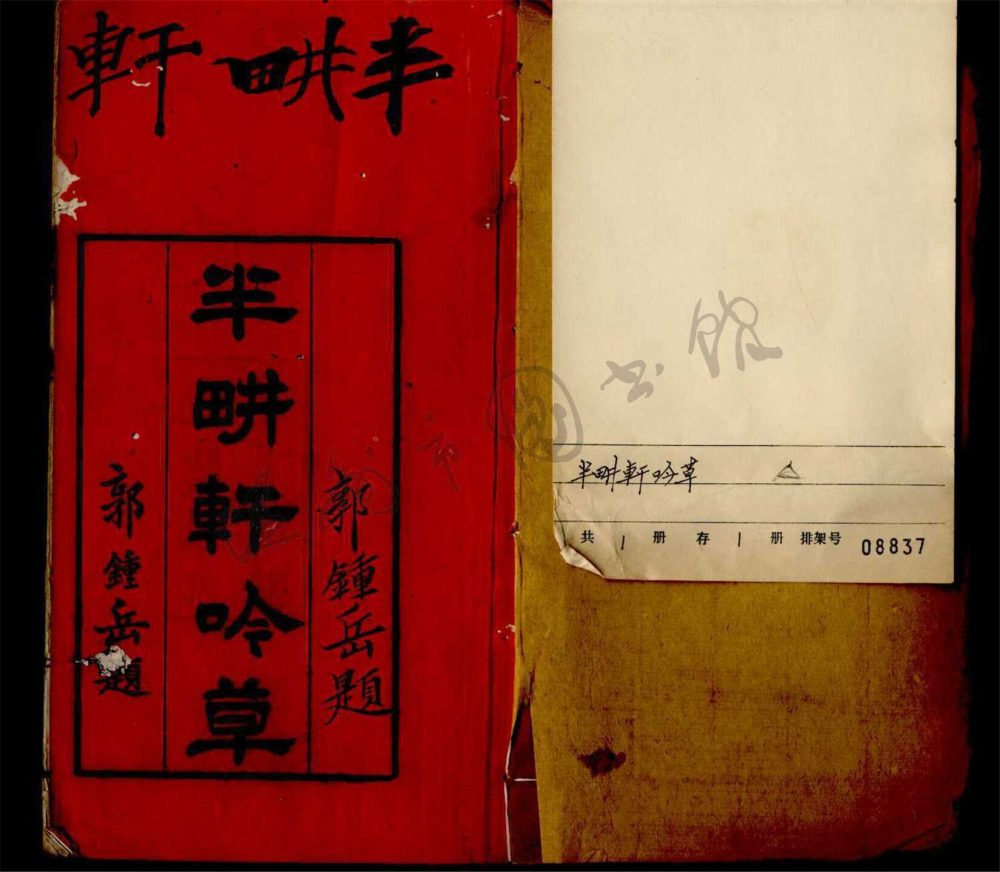 半畊軒
郭鍾岳題
半畊軒吟草
郭鍾岳題
半畊軒吟草
共 1 册 存 1 册 排架号 08837
市图书馆